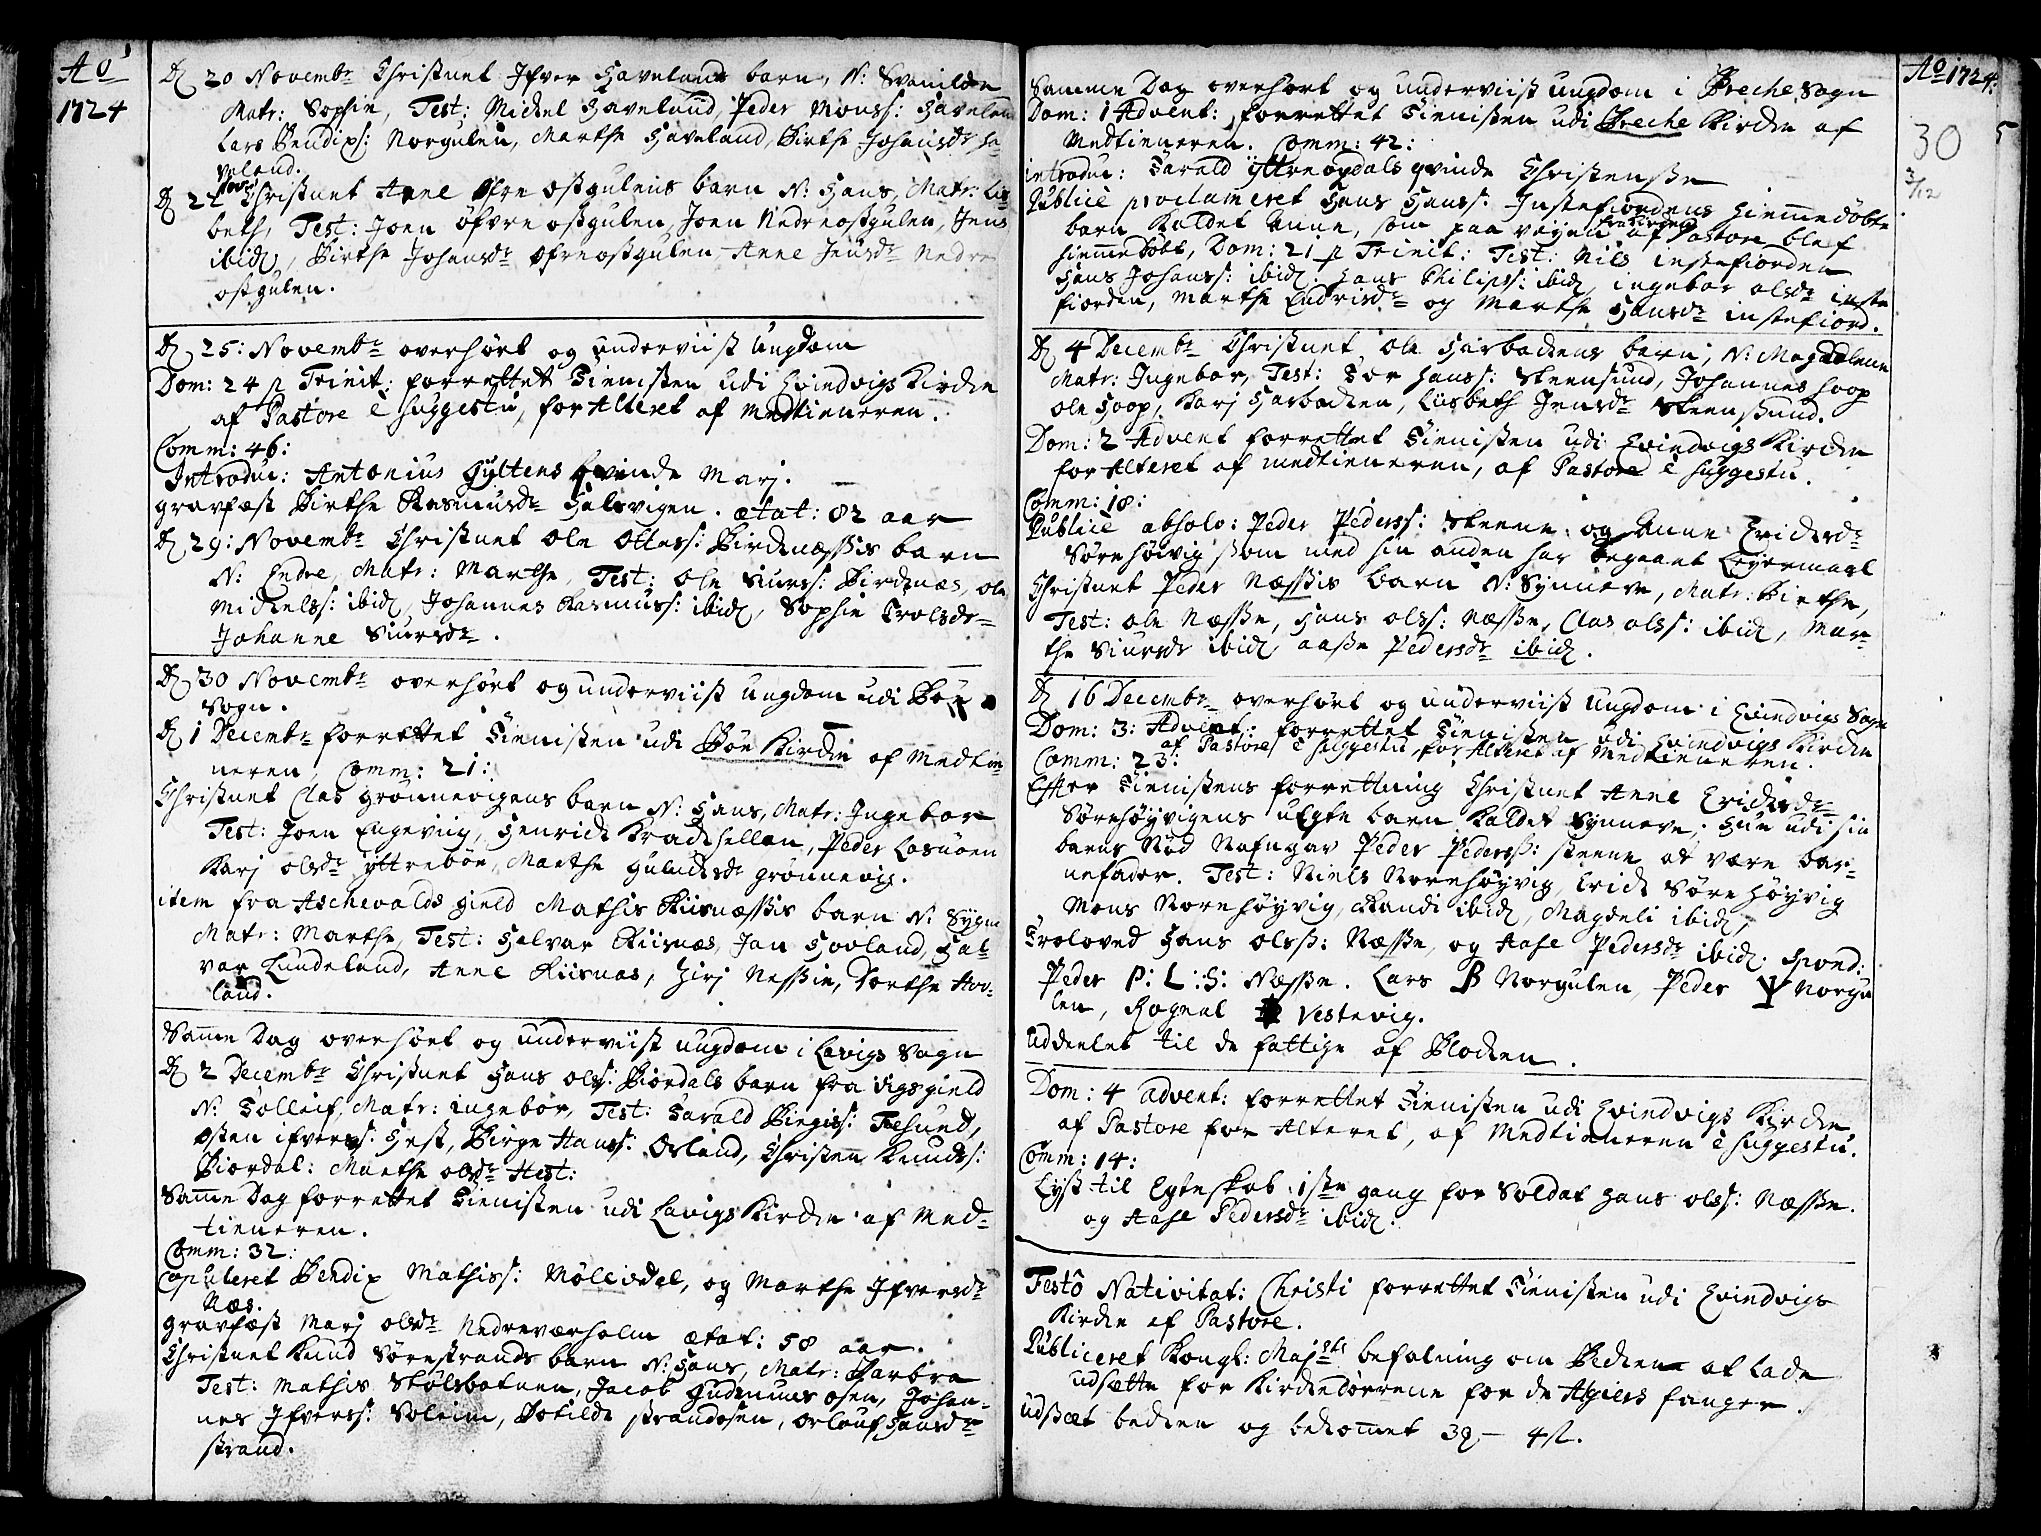 Ao
1724
D 20 Novembr Christnet Ifver Haveland barn, N: Svanilde
Matr: Sophie, Test: Mickel Haveland, Peder Monss: Havelan
Lars Bendixs: Norgulen, Marthe Haveland, Birthe Johansdr Ha-
veland.
D 21 Nov: Christnet Arne Øfre ostgulens barn N: Hans, Matr: Lis
beth, Test: Joen öfvre ostgulen, Joen Nedreostgulen, Jens
ibid, Birthe Johansdr Øfreostgulen Anne Jensdr Nedre
ostgulen.
D 25: Novembr overhört og underviist Ungdom
Dom: 24 p Trinit: forrettet Tienisten udi Evindvigs Kircke
af Pastore è suggestu, for Alteret af Medtieneren.
Comm: 46:
Introduc: Antonius Gyltens Qvinde Marj.
gravfæst Birthe Rasmusdr Halsvigen. ætat: 82 aar
D 29: Novembr Christnet Ole Ottess: Birckenæssis barn
N: Endre, Matr: Marthe, Test: Ole Siurss: Birckenæs, ole
Mickelss: ibid, Johannes Rasmuss: ibid, Sophie Trolsdr
Johanne Siursdr.
D 30 Novembr overhört og underviist ungdom udi Böe
Sogn.
D 1 Decembr forrettet Tienisten udi Böe Kircke af Medtie-
neren, Comm: 21:
Christnet Clas grönnevigens barn N: Hans, Matr: Ingebor
Test: Joen Engeviig, Henrick Krackhellen, Peder Losnöen
Karj olsdr yttreböe, Marthe Gulucksdr grönnevig.
item fra Aschevolds gield Mathis Riisnæssis barn N: Sygne
Matr: Marthe, Test: Halvar Riisnæs, Jan Hovland, Hal-
var Lundeland, Anne Riisnæs, Zirj Nessie, Dorthe Hov-
land.
Samme Dag overhört og underviist ungdom i Lavigs Sogn
D 2 Decembr Christnet Hans olss: Biordals barn fra Vigsgield
N: Tolleif, Matr: ingebor, Test: Harald Birgiss: Tresund,
østen ifverss: Hest, Birge Hanss: Orland, Christen Knudss:
Biordal: Marthe olsdr Hest:
Samme Dag forrettet Tienisten udi Lavigs Kircke af Med-
tieneren.
Comm: 32:
Copuleret Bendix Mathiss: Möllisdal, og Marthe Ifversdr
Næs.
gravfæst Marj olsdr Nedreværholm ætat: 58 aar.
Christnet Knud Sörestrands barn N: Hans, Matr: Barbra
Test: Mathis Stölsbotnen, Jacob Gudmunsosen, Johan-
nes Ifverss: Soleim, Botilde strandosen, Orlouf Hansdr
strand.
Ao 1724
30
5
3/12
Samme Dag overhört og underviist ungdom i Breche sogn
Dom: 1 Advent: forrettet Tienisten udi Breche Kircke af
Medtieneren. Comm: 42:
introduc: Harald Yttreøydals qvinde Christense
Publicè proclameret Hans Hanss: Instefiordens hiemmedöbte
barn Kaldet Anne, som paa veyen fra Kircken af Pastore blef
hiemmedöbt, Dom: 21 p Trinit: Test: Nils instefiorden
Hans Johanss: ibid, Hans Philipss: ibid, ingebor olsdr inste
fiorden, Marthe Endrisdr og Marthe Hansdr instefiord.
D 4 Decembr Christnet Ole Harbackens barn, N: Magdalene
Matr: Ingebor, Test: Tor Hanss: Steensund, Johannes hoop
ole Hoop, Karj Harbacken, Lisbeth Jensdr Steensund.
Dom: 2 Advent forrettet Tienisten udi Evindvigs Kircke
for Alteret af medtieneren, af Pastore è suggestu.
Comm: 18:
Publicè absolv: Peder Pederss: Steene og Anne Ericksdr
Sörehöivig som med hin anden har begaaet Leyermaal
Christnet Peder Næssis barn N: Synneve, Matr: Birthe,
Test: ole Næsse, Hans olss: Næsse, Clas olss: ibid, Mar-
the Siursdr ibid, aase Pedersdr ibid.
D 16 Decembr overhört og underviist ungdom i Evindvigs Sogn
Dom: 3: Advent: forrettet Tienisten udi Evindvigs Kircke
af Pastore è suggestu, for Alteret af Medtieneren.
Comm: 23:
Effter Tienistens forrettning Christnet Anne Ericksdr
Sörehöyvigens uEgte barn kaldet Synneve; Hun udi sin
barns Nöd Nafngav Peder Pederss: steene at være bar-
nefader. Test: Niels Norehöyvig, Erick Söre Höyvig
Mons Norehöyvig, Randi ibid, Magdeli ibid,
Troloved Hans Olss: Næsse, og Aase Pedersdr ibid. Spond:
Peder P: L: S: Næsse. Lars B Norgulen, Peder Y Norgu
len, Rognal Vestevig.
Uddeelet til de fattige af Blocken.
Dom: 4 advent: forrettet Tienisten udi Evindvigs Kircke
af Pastore for Alteret, af Medtieneren è suggestu.
Comm: 14:
Lyst til Egteskab 1ste gang for Soldat Hans olss: Næsse.
og Aase Pedersdr ibid:
Festô Nativitat: Christi forrettet Tienisten udi Evindvigs
Kircke af Pastore.
Publiceret Kongl: Majsts befalning om Becken at lade
udsætte for Kirckedörrene for de Algiers fanger.
Udsæt becken og bekommet 3 – 4 s.